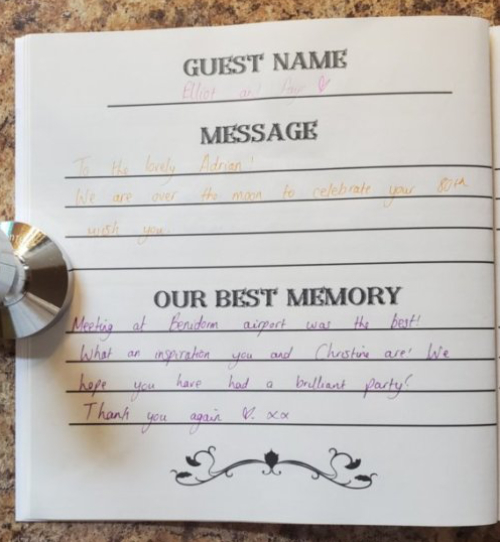 GUEST NAME
Elliot and ♡
MESSAGE
To the lovely Adrian!
We are over the moon to celebrate your 80th
with you.
OUR BEST MEMORY
Meeting at Benidorm airport was the best!
What an inspiration you and Christine are! We
hope you have had a brilliant party!
Thank you again ♡. xx